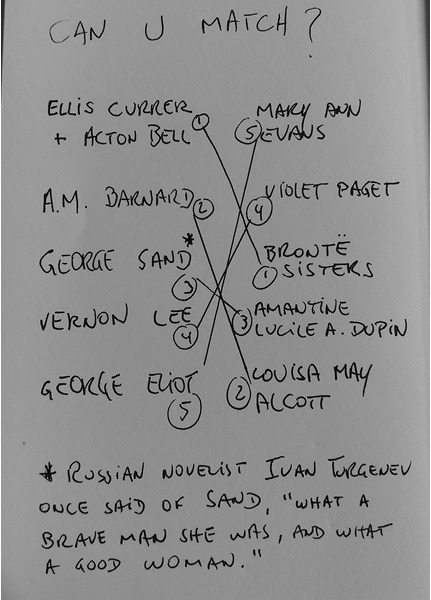 CAN U MATCH?
ELLIS CURRER
+ ACTON BELL ①
A.M. BARNARD ②
GEORGE SAND*
③
VERNON LEE
④
GEORGE ELIOT
⑤
MARY ANN
⑤ EVANS
VIOLET PAGET
④
BRONTË
① SISTERS
③ AMANTINE
LUCILE A. DUPIN
② LOUISA MAY
ALCOTT
* RUSSIAN NOVELIST IVAN TURGENEV
ONCE SAID OF SAND, "WHAT A
BRAVE MAN SHE WAS, AND WHAT
A GOOD WOMAN."